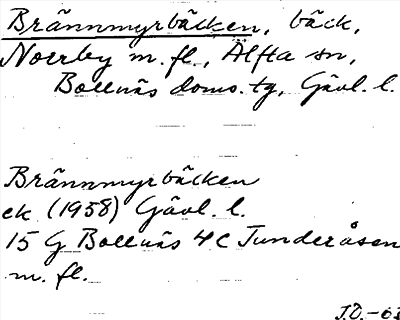 Brännmyrbäcken, bäck,
Norrby m. fl., Alfta sn,
Bollnäs doms. tg, Gävl. l.
Brännmyrbäcken
ek (1958) Gävl. l.
15 G Bollnäs 4c Tunderåsen
m. fl.
J.Ö.-63